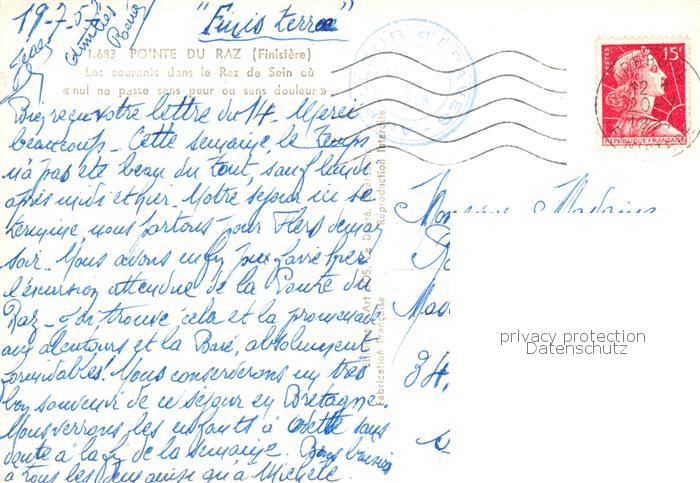 19-7-5
"Finis terrae"
Amitiés
René
1.683 POINTE DU RAZ (Finistère)
Les courants dans le Raz de Sein où
« nul ne passe sans peur ou sans douleur »
Bien reçu votre lettre du 14. Merci
beaucoup. Cette semaine, le temps
n'a pas été beau du tout, sauf lundi
après midi et hier. Notre séjour ici se
termine, nous partons pour Flers demain
soir. Nous avons enfin pu faire hier
l'excursion attendue de la Pointe du
Raz - trouve cela et la promenade
aux alentours et la Baie, absolument
formidables! Nous conserverons un très
bon souvenir de ce séjour en Bretagne.
Nous verrons les enfants à sans
doute à la fin de la semaine. Bons baisers
à tous les deux ainsi qu'à Michèle.
Reproduction interdite
Fabrication Française
POSTES
15F
REPUBLIQUE FRANÇAISE
12
20
Monsieur Madame
Mad
34,
privacy protection
Datenschutz